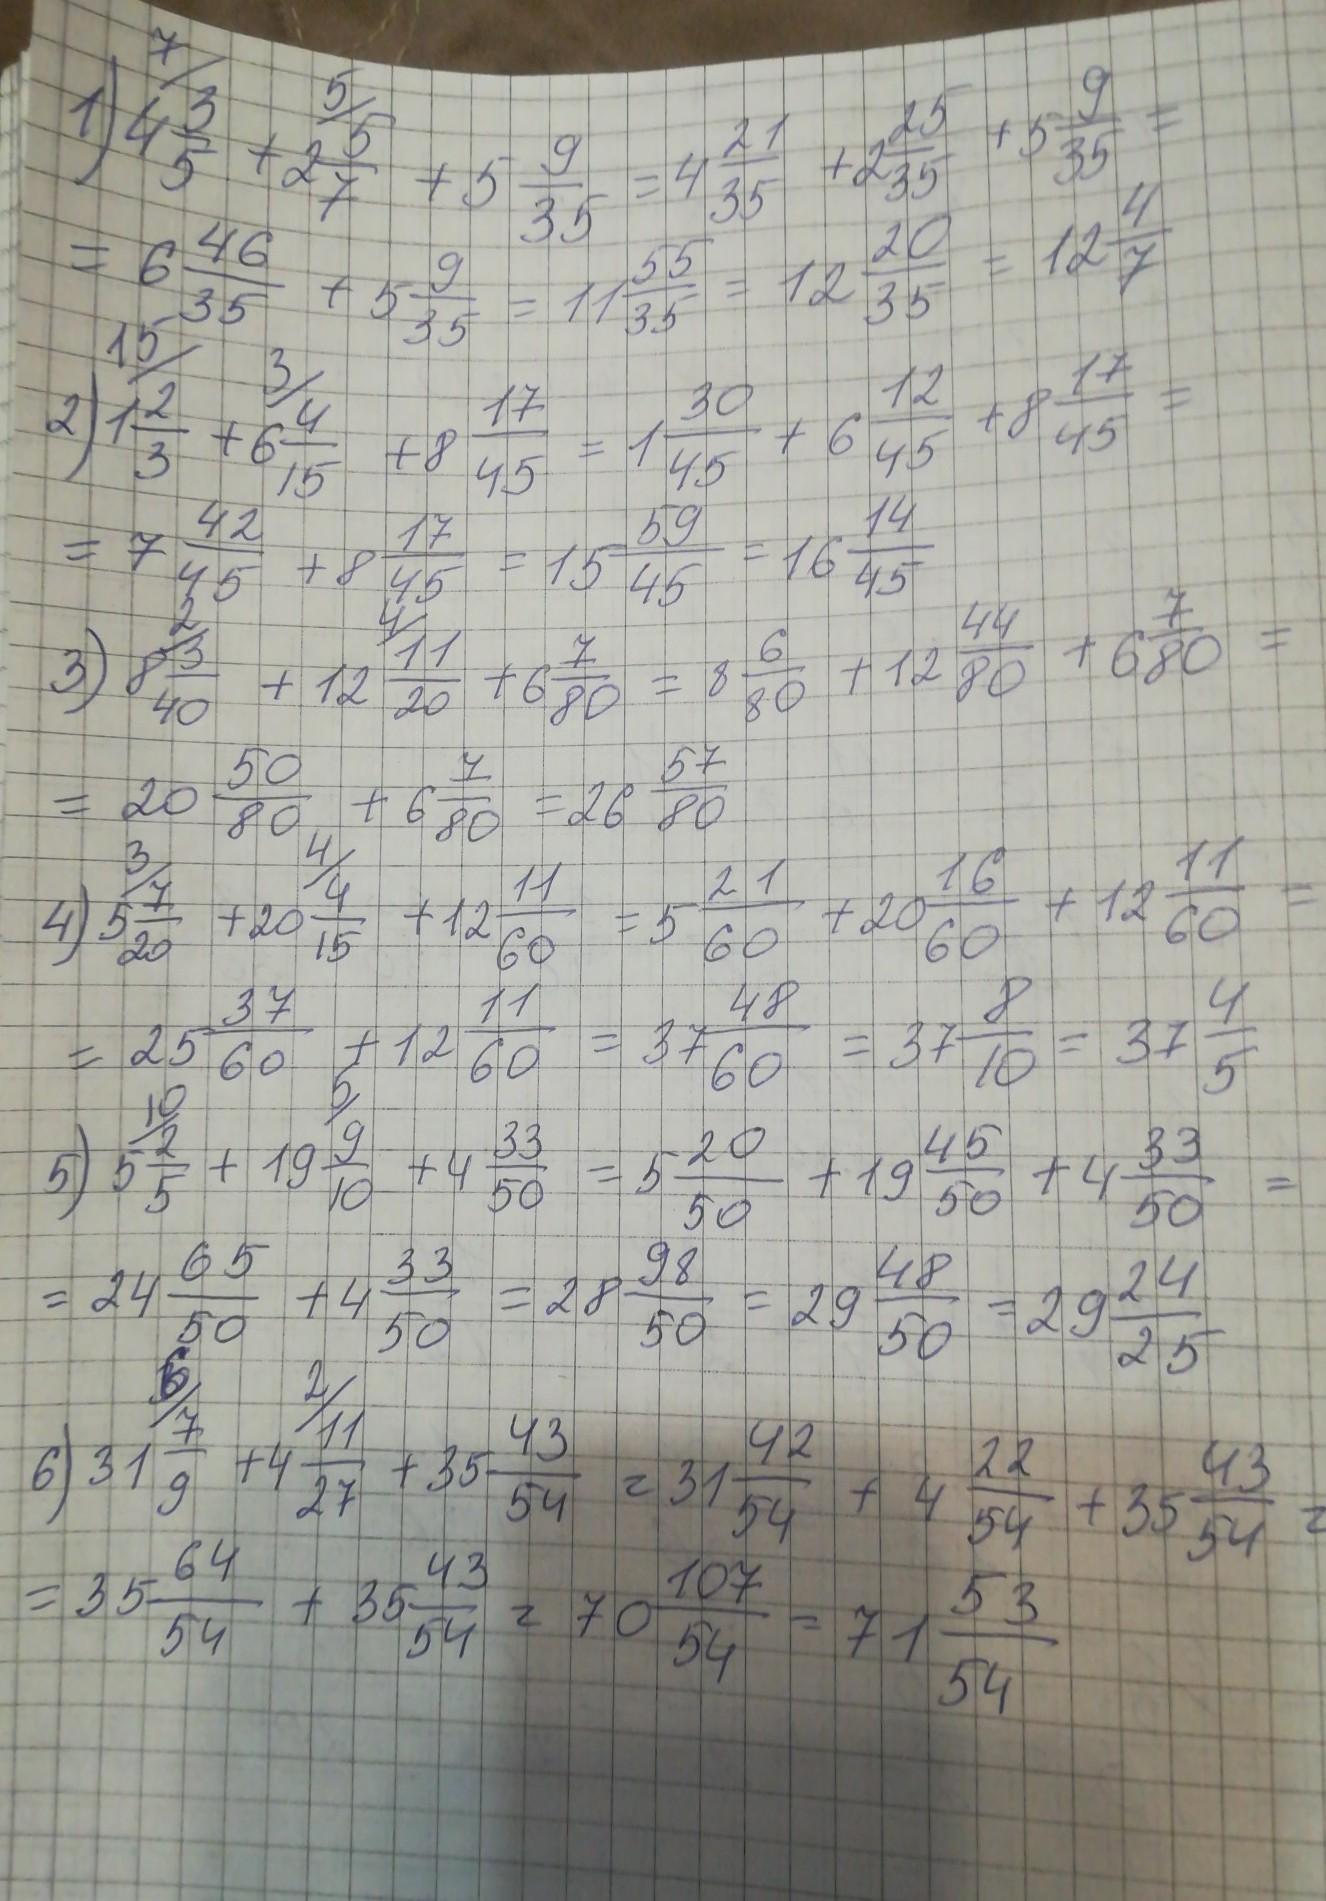 1) 4 3/5 (7/) + 2 5/7 (5/) + 5 9/35 = 4 21/35 + 2 25/35 + 5 9/35 =
= 6 46/35 + 5 9/35 = 11 55/35 = 12 20/35 = 12 4/7
2) 1 2/3 (15/) + 6 4/15 (3/) + 8 17/45 = 1 30/45 + 6 12/45 + 8 17/45 =
= 7 42/45 + 8 17/45 = 15 59/45 = 16 14/45
3) 8 3/40 (2/) + 12 11/20 (4/) + 6 7/80 = 8 6/80 + 12 44/80 + 6 7/80 =
= 20 50/80 + 6 7/80 = 26 57/80
4) 5 7/20 (3/) + 20 4/15 (4/) + 12 11/60 = 5 21/60 + 20 16/60 + 12 11/60 =
= 25 37/60 + 12 11/60 = 37 48/60 = 37 8/10 = 37 4/5
5) 5 2/5 (10/) + 19 9/10 (5/) + 4 33/50 = 5 20/50 + 19 45/50 + 4 33/50 =
= 24 65/50 + 4 33/50 = 28 98/50 = 29 48/50 = 29 24/25
6) 31 7/9 (6/) + 4 11/27 (2/) + 35 43/54 = 31 42/54 + 4 22/54 + 35 43/54 =
= 35 64/54 + 35 43/54 = 70 107/54 = 71 53/54